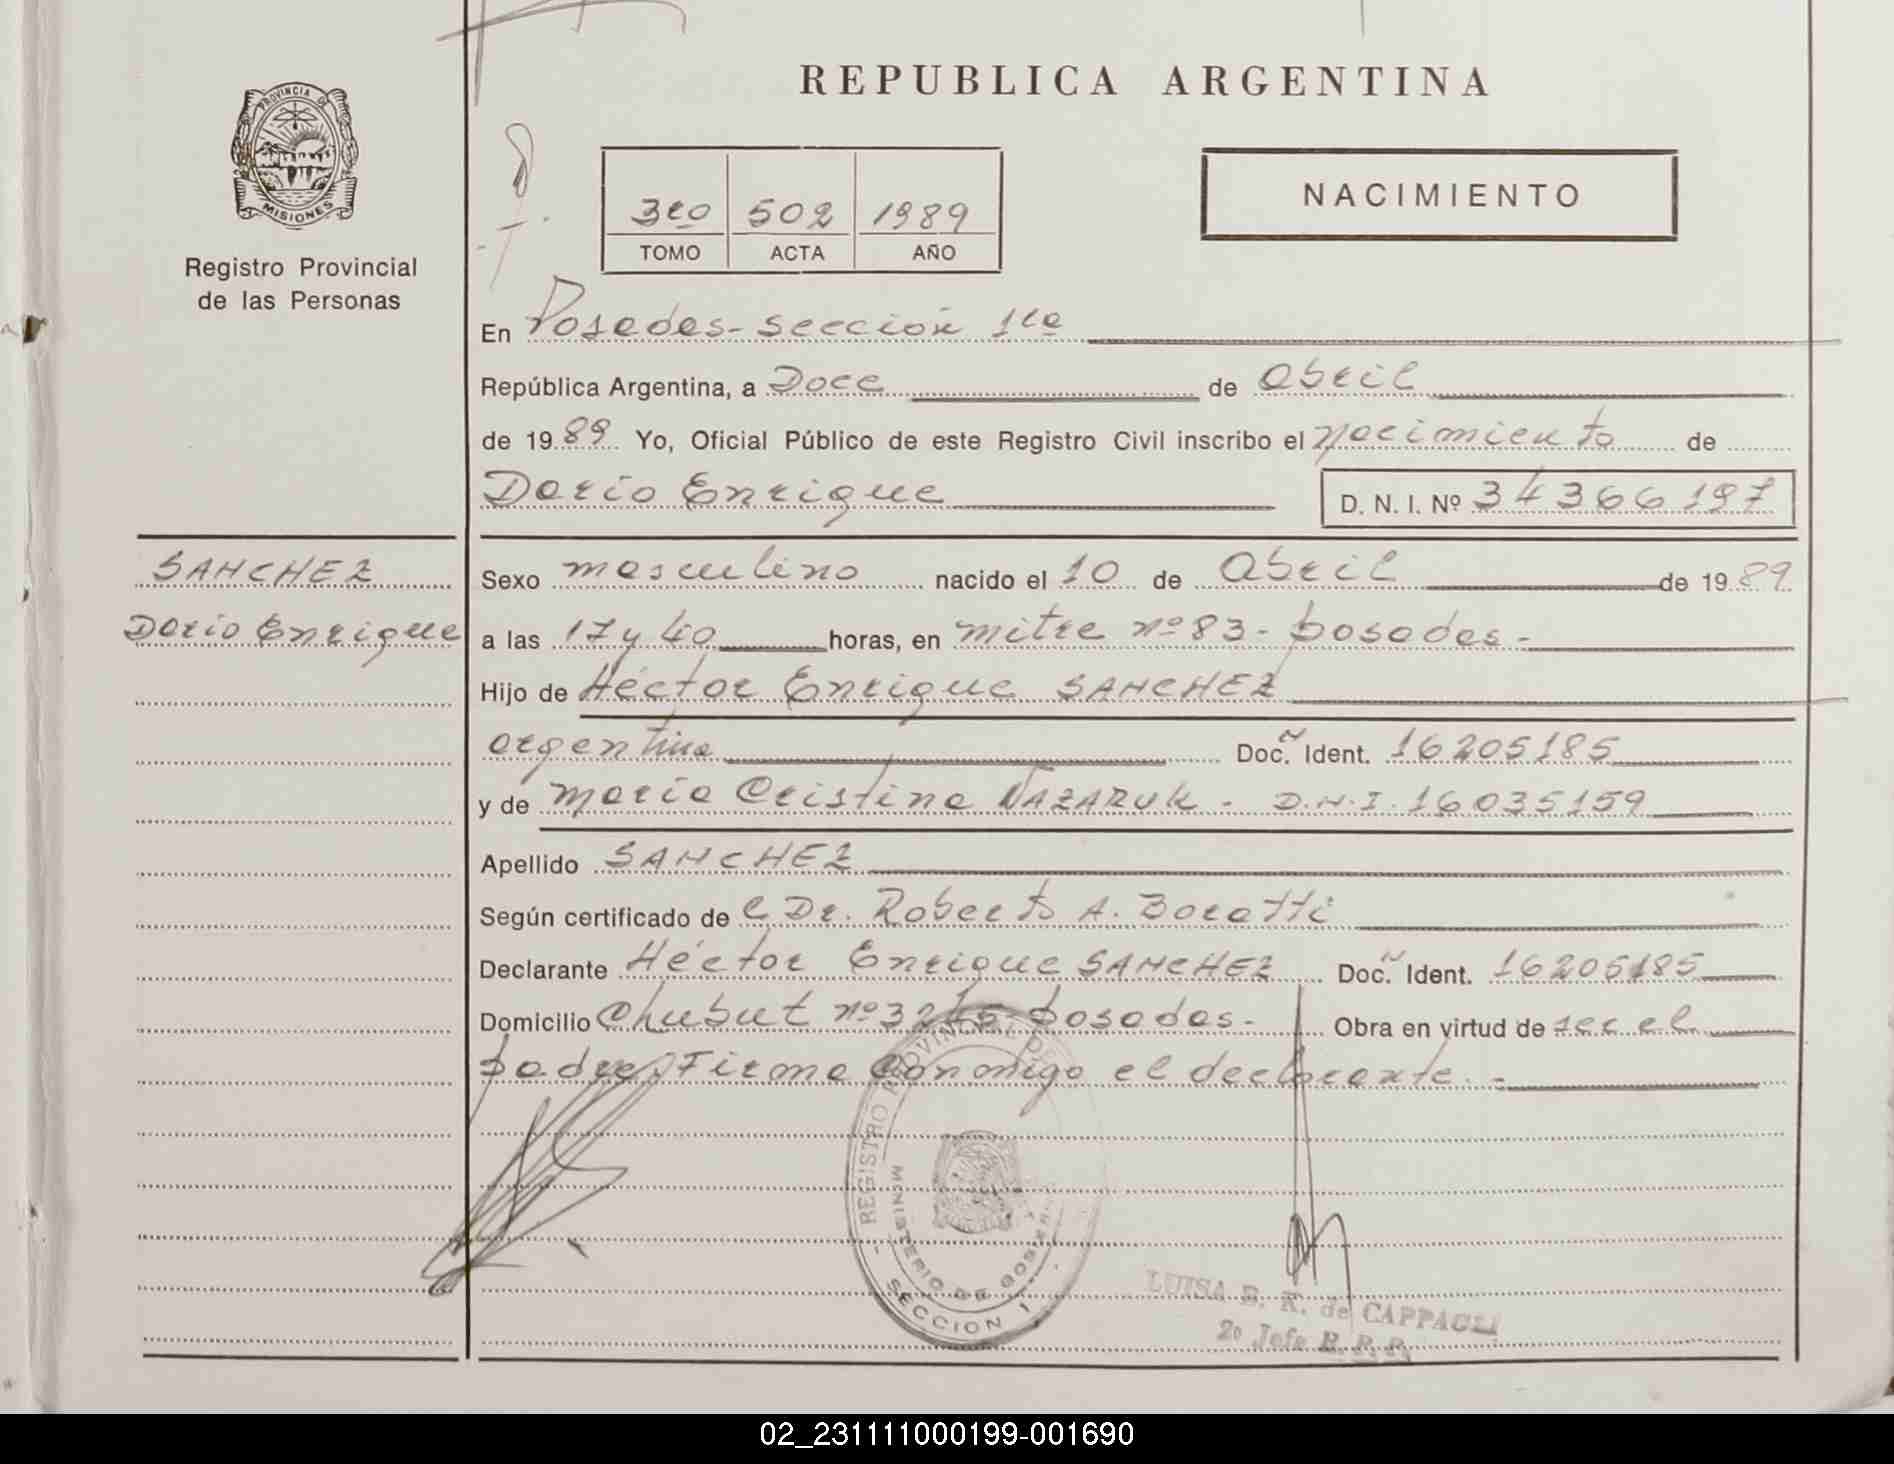 REPUBLICA ARGENTINA
PROVINCIA DE
MISIONES
Registro Provincial
de las Personas
3ro 502 1989
TOMO ACTA AÑO
NACIMIENTO
En Posadas - sección 1ra
República Argentina, a Doce de Abril
de 1989 Yo, Oficial Público de este Registro Civil inscribo el nacimiento de
Dario Enrique D. N. I. Nº 34366197
SANCHEZ
Dario Enrique
Sexo masculino nacido el 10 de Abril de 1989
a las 17 y 40 horas, en mitre nº 83 - posadas -
Hijo de Héctor Enrique SANCHEZ
argentina Doc. Ident. 16205185
y de maria Cristina NAZARUK - D.N.I. 16035159
Apellido SANCHEZ
Según certificado de l Dr. Roberto A. Boratti
Declarante Héctor Enrique SANCHEZ Doc. Ident. 16205185
Domicilio Chubut nº posadas - Obra en virtud de ser el
padre, Firma Conmigo el declarante. -
REGISTRO PROVINCIAL DE
MINISTERIO DE
SECCION 1
LUISA E. K. de CAPPAGLI
2º Jefe R. P. P.
02_231111000199-001690